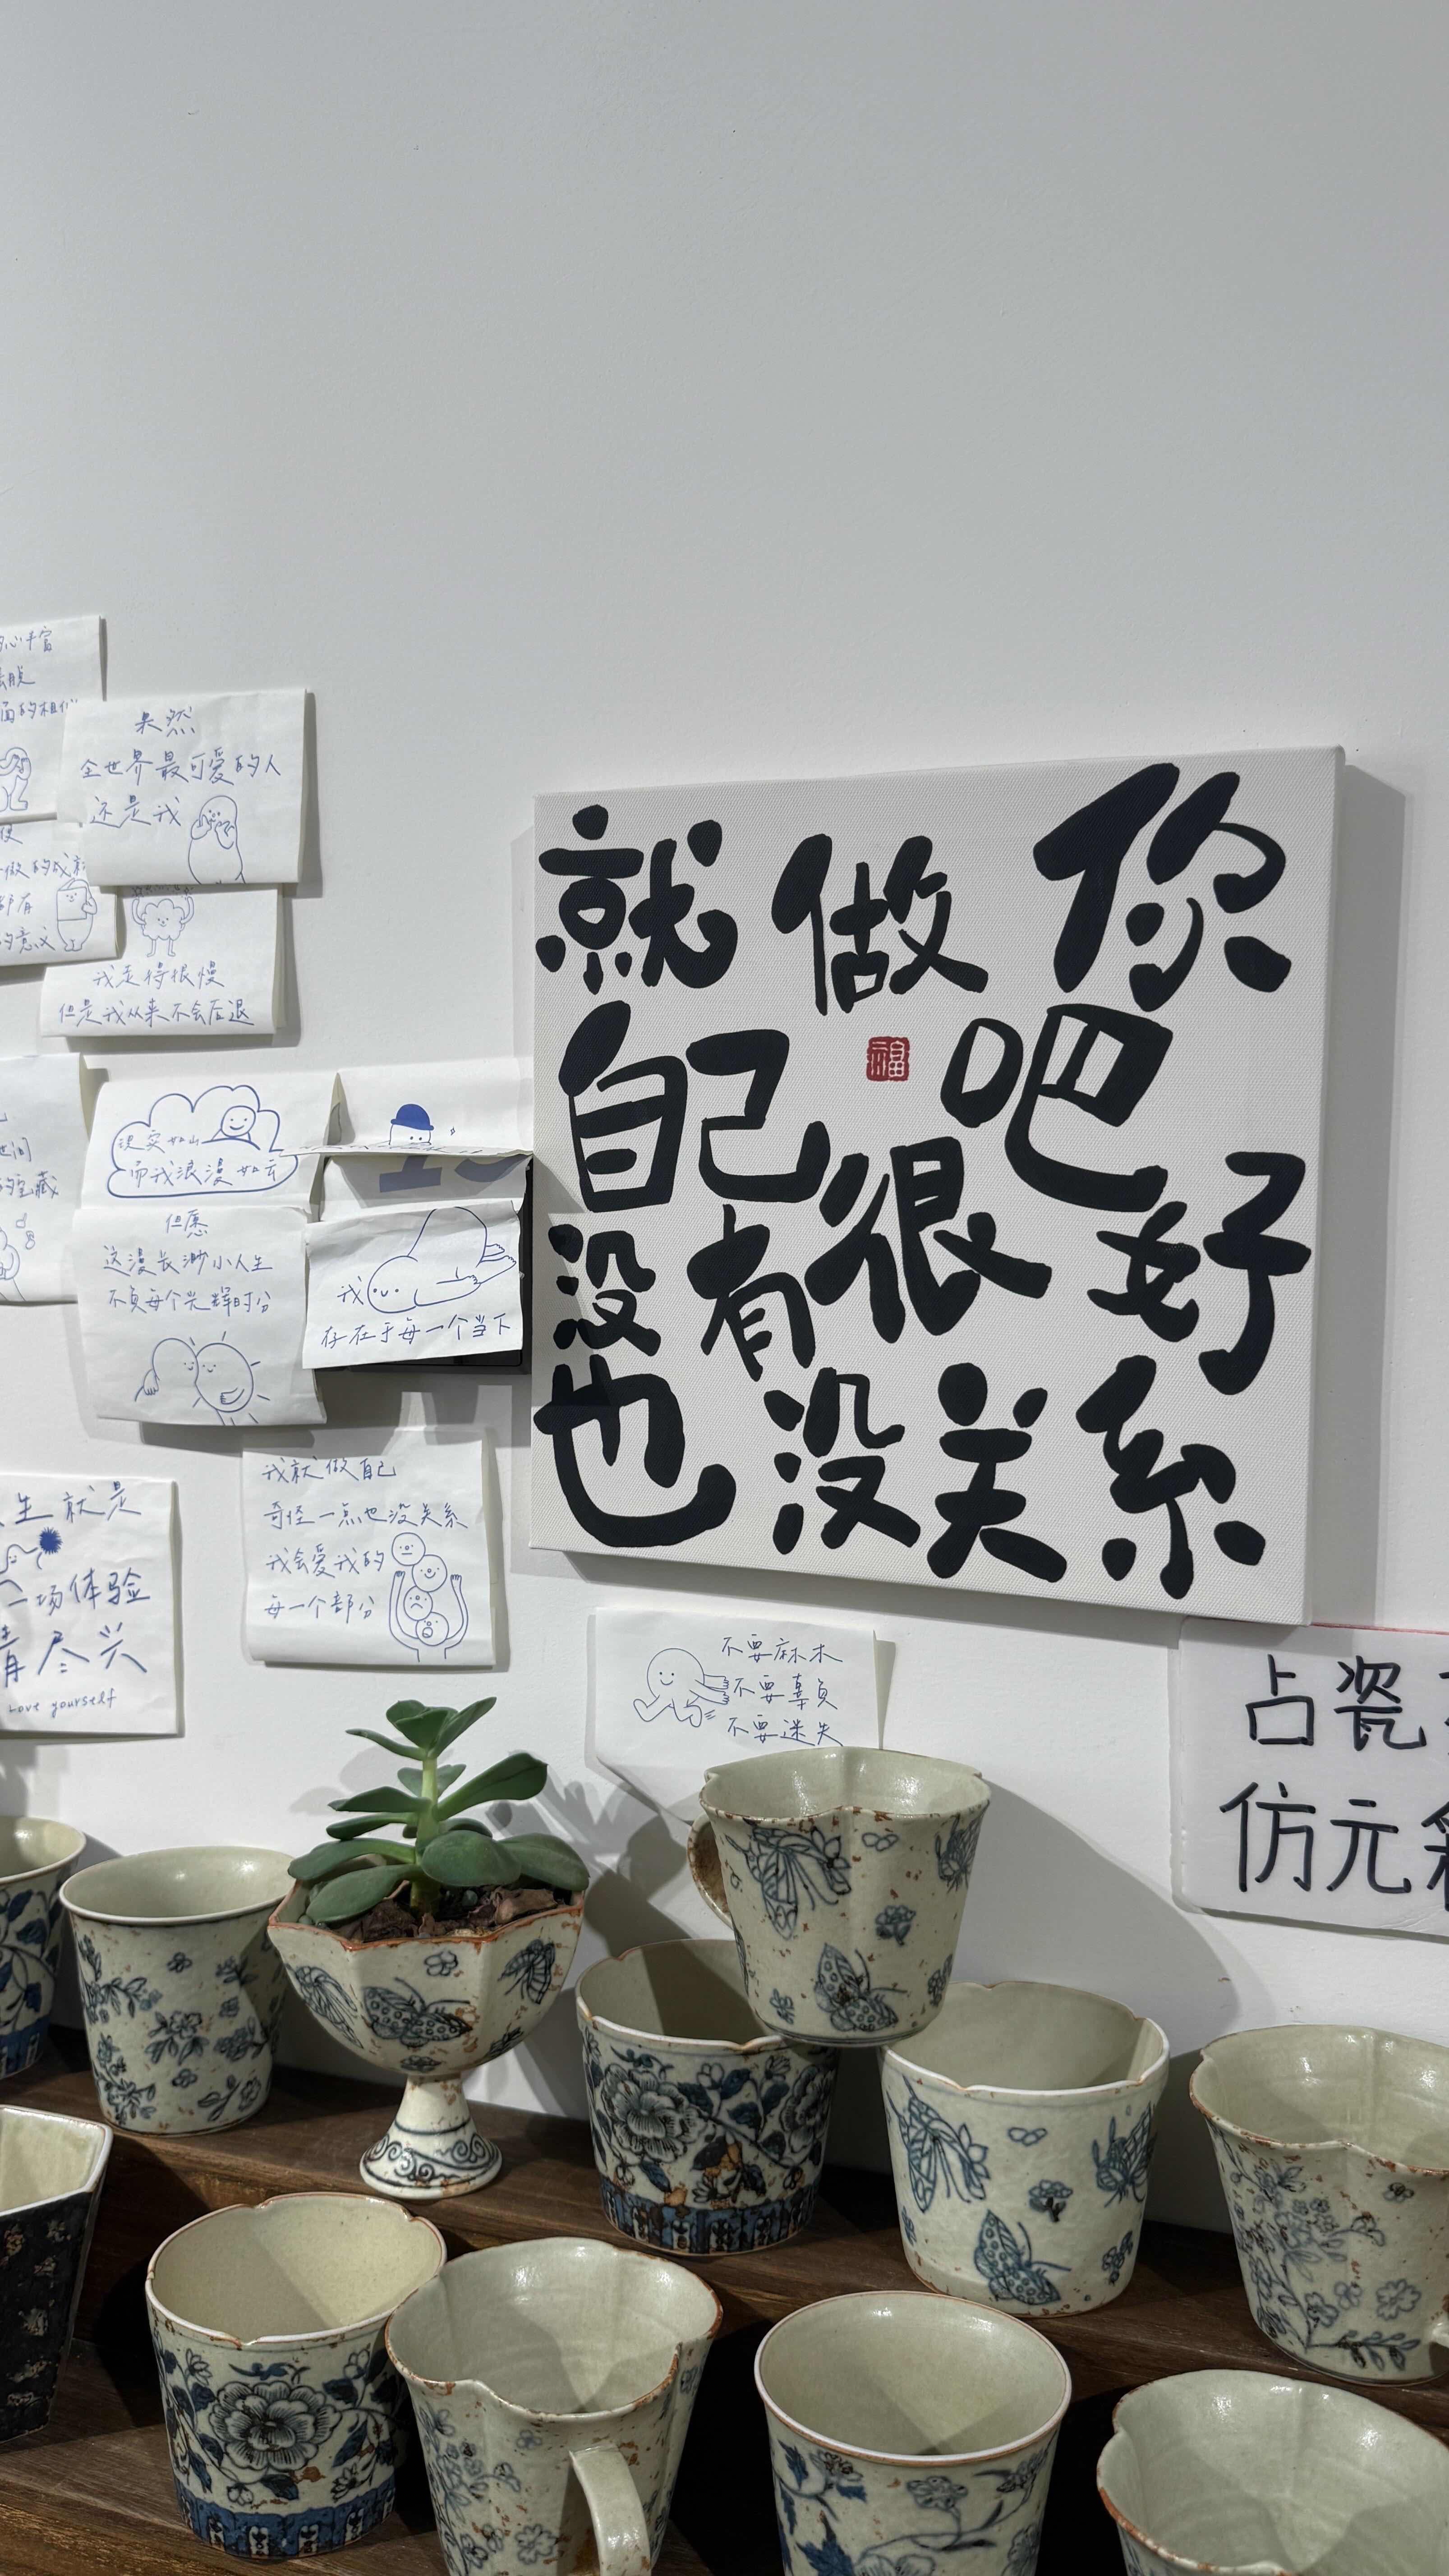 你做就
吧自己
好很有没
系关没也
福
心丰富
面的相似
果然
全世界最可爱的人
还是我
做的成就
都有
的意义
我走得很慢
但是我从来不会后退
现实如山
而我浪漫如云
世间
的宝藏
但愿
这漫长渺小人生
不负每个光辉时分
我
存在于每一个当下
我就做自己
奇怪一点也没关系
我会爱我的
每一个部分
生就是
一场体验
请尽兴
Love yourself
不要麻木
不要辜负
不要迷失
占瓷
仿元